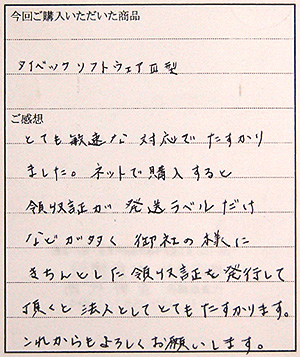 今回ご購入いただいた商品
タイベックソフトウェアⅢ型
ご感想
とても敏速な対応でたすかり
ました。ネットで購入すると
領収証が発送ラベルだけ
などが多く御社の様に
きちんとした領収証を発行して
頂くと法人としてとてもたすかります。
これからもよろしくお願いします。